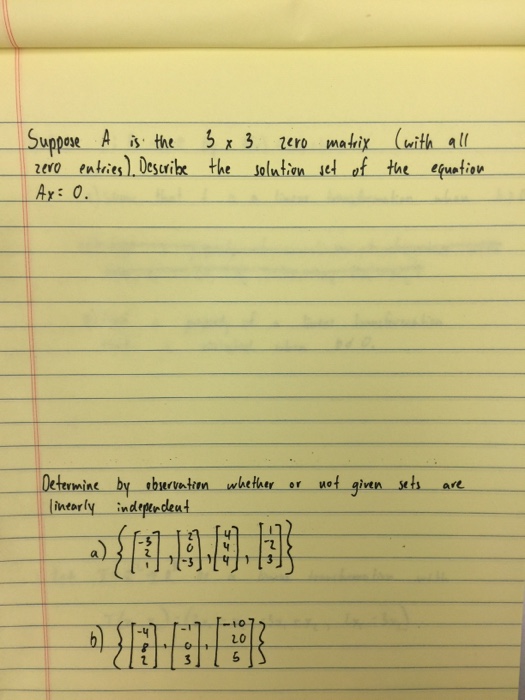 Suppose A is the 3 x 3 zero matrix (with all
zero entries). Describe the solution set of the equation
Ax = 0.
Determine by observation whether or not given sets are
linearly independent
a) {[-3 2 1], [2 0 -3], [4 4 4], [1 -2 3]}
b) {[-4 8 2], [-1 0 3], [-10 20 5]}